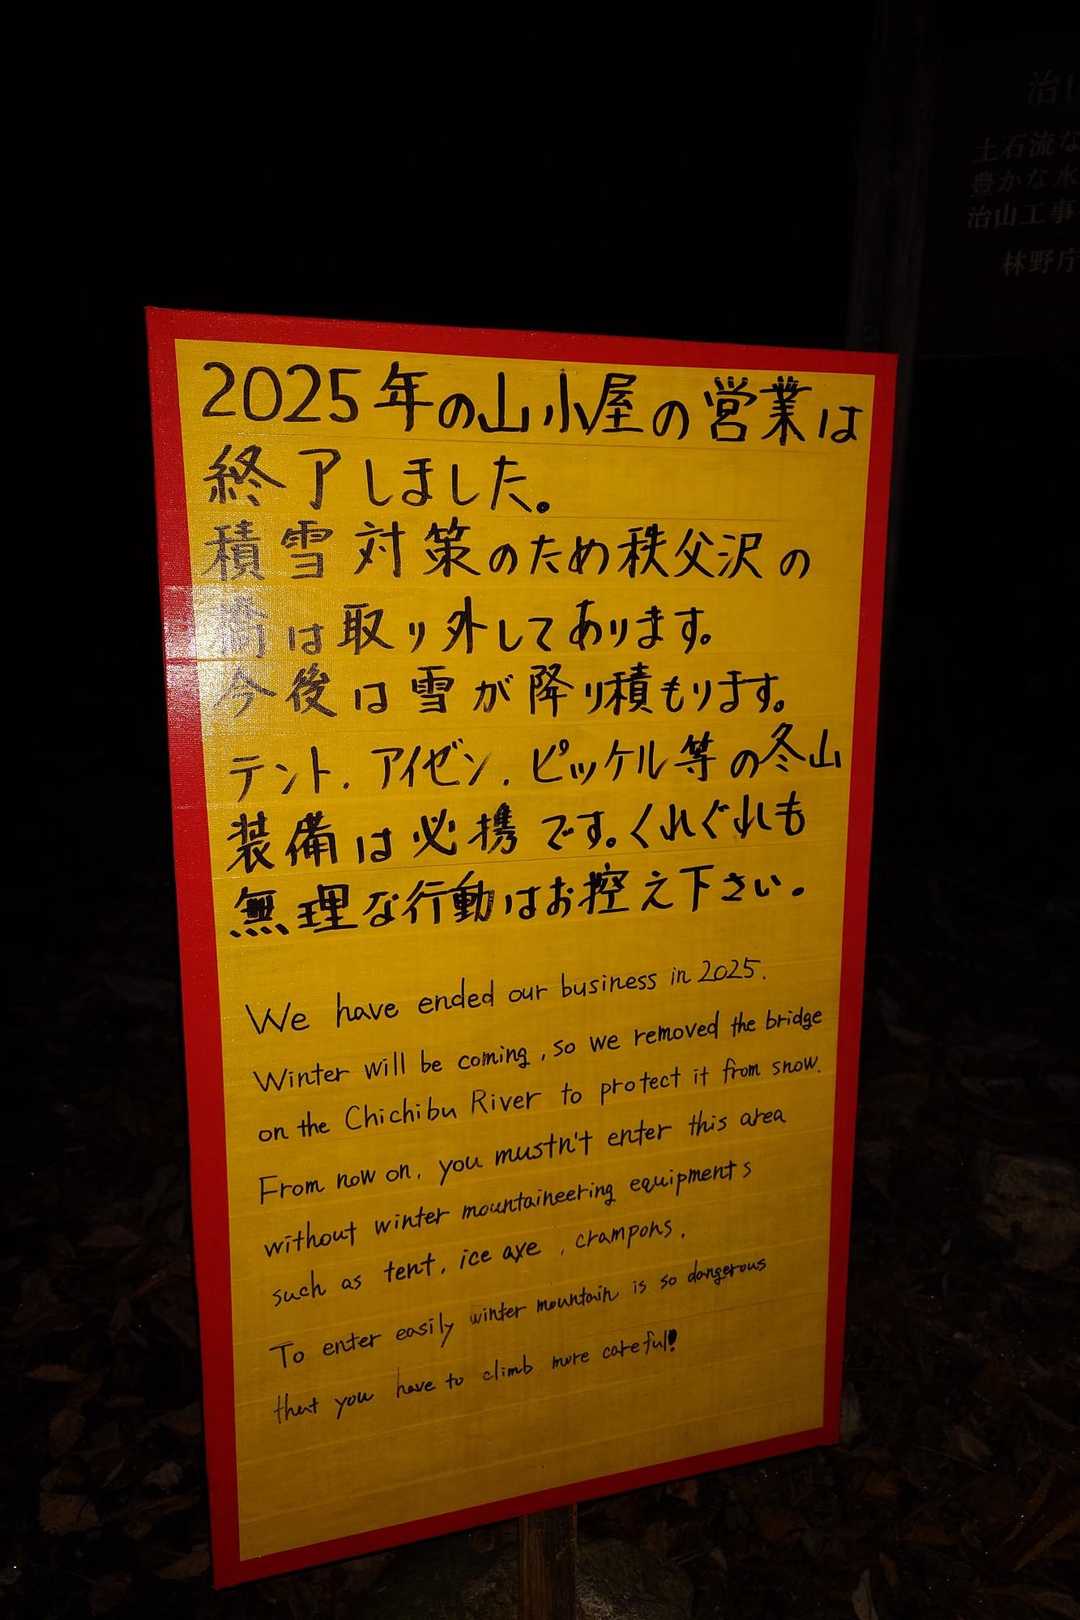 2025年の山小屋の営業は
終了しました。
積雪対策のため秩父沢の
橋は取り外してあります。
今後は雪が降り積もります。
テント、アイゼン、ピッケル等の冬山
装備は必携です。くれぐれも
無理な行動はお控え下さい。
We have ended our business in 2025.
Winter will be coming, so we removed the bridge
on the Chichibu River to protect it from snow.
From now on, you mustn't enter this area
without winter mountaineering equipments
such as tent, ice axe, crampons.
To enter easily winter mountain is so dangerous
that you have to climb more careful!
治山
土石流な
豊かな水
治山工事
林野庁